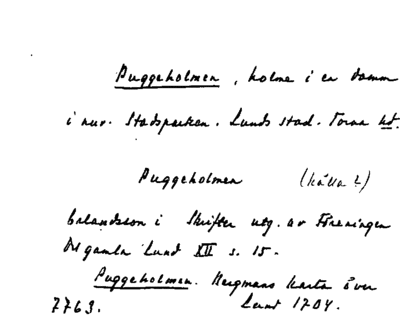 Puggeholmen, holme i en damm
i nuv. Stadsparken. Lunds stad. Torna hd.
Puggeholmen (källa?)
Erlandsson i Skrifter utg. av Föreningen
Det gamla Lund XII s. 15.
Puggeholmen. Bergmans karta över
7763. Lund 1704.